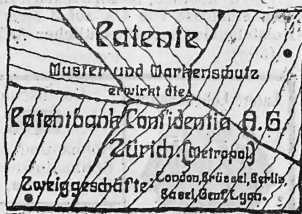 Patente
Muster und Markenschutz
erwirkt die
Patentbank Confidentia A.G.
Zürich. (Metropol)
Zweiggeschäfte: London, Brüssel, Berlin,
Basel, Genf, Lyon.